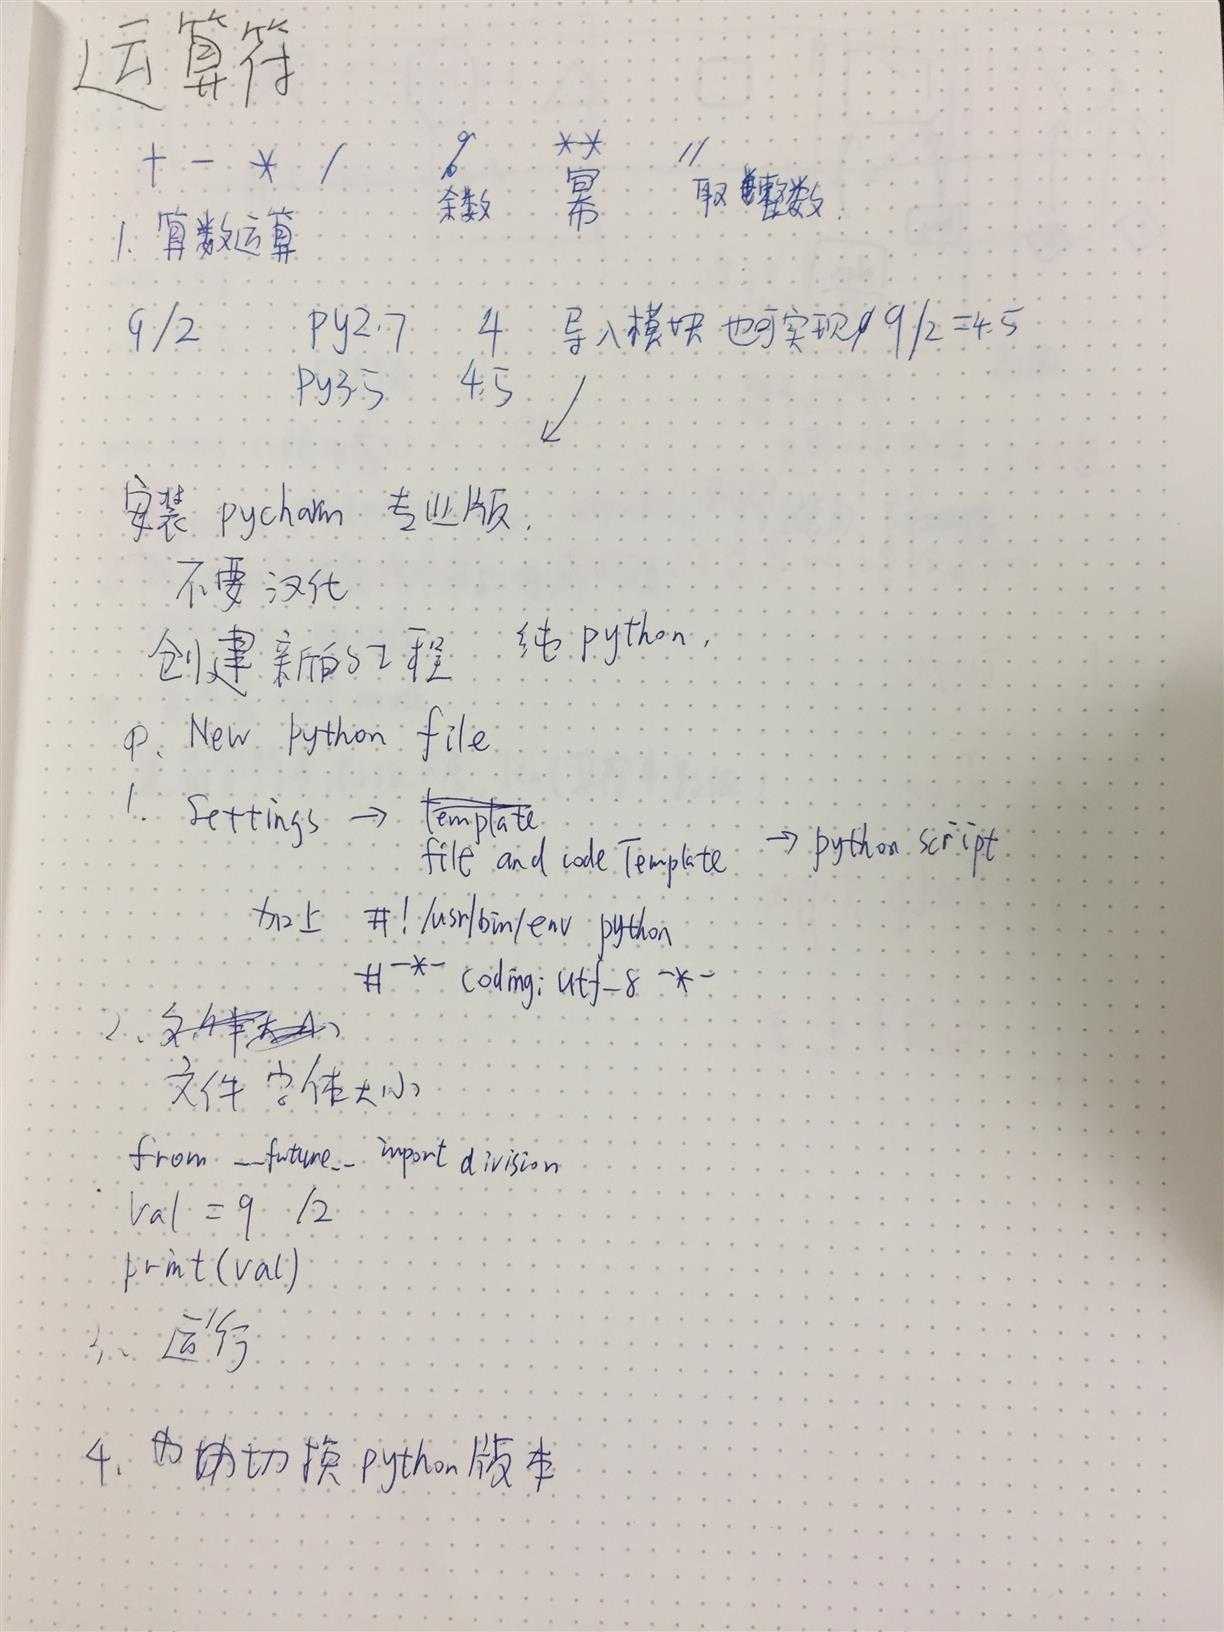 运算符
+ - * / % ** //
余数 幂 取整数
1. 算数运算
9/2 py2.7 4 导入模块也可实现 9/2=4.5
py3.5 4.5
安装 pycharm 专业版.
不要汉化
创建新的工程 纯python.
0. New python file
1. Settings → Template
file and code Template → python script
加上 #!/usr/bin/env python
# -*- coding: utf_8 -*-
2.
文件字体大小
from __future__ import division
val = 9 /2
print(val)
3. 运行
4. 切换python版本